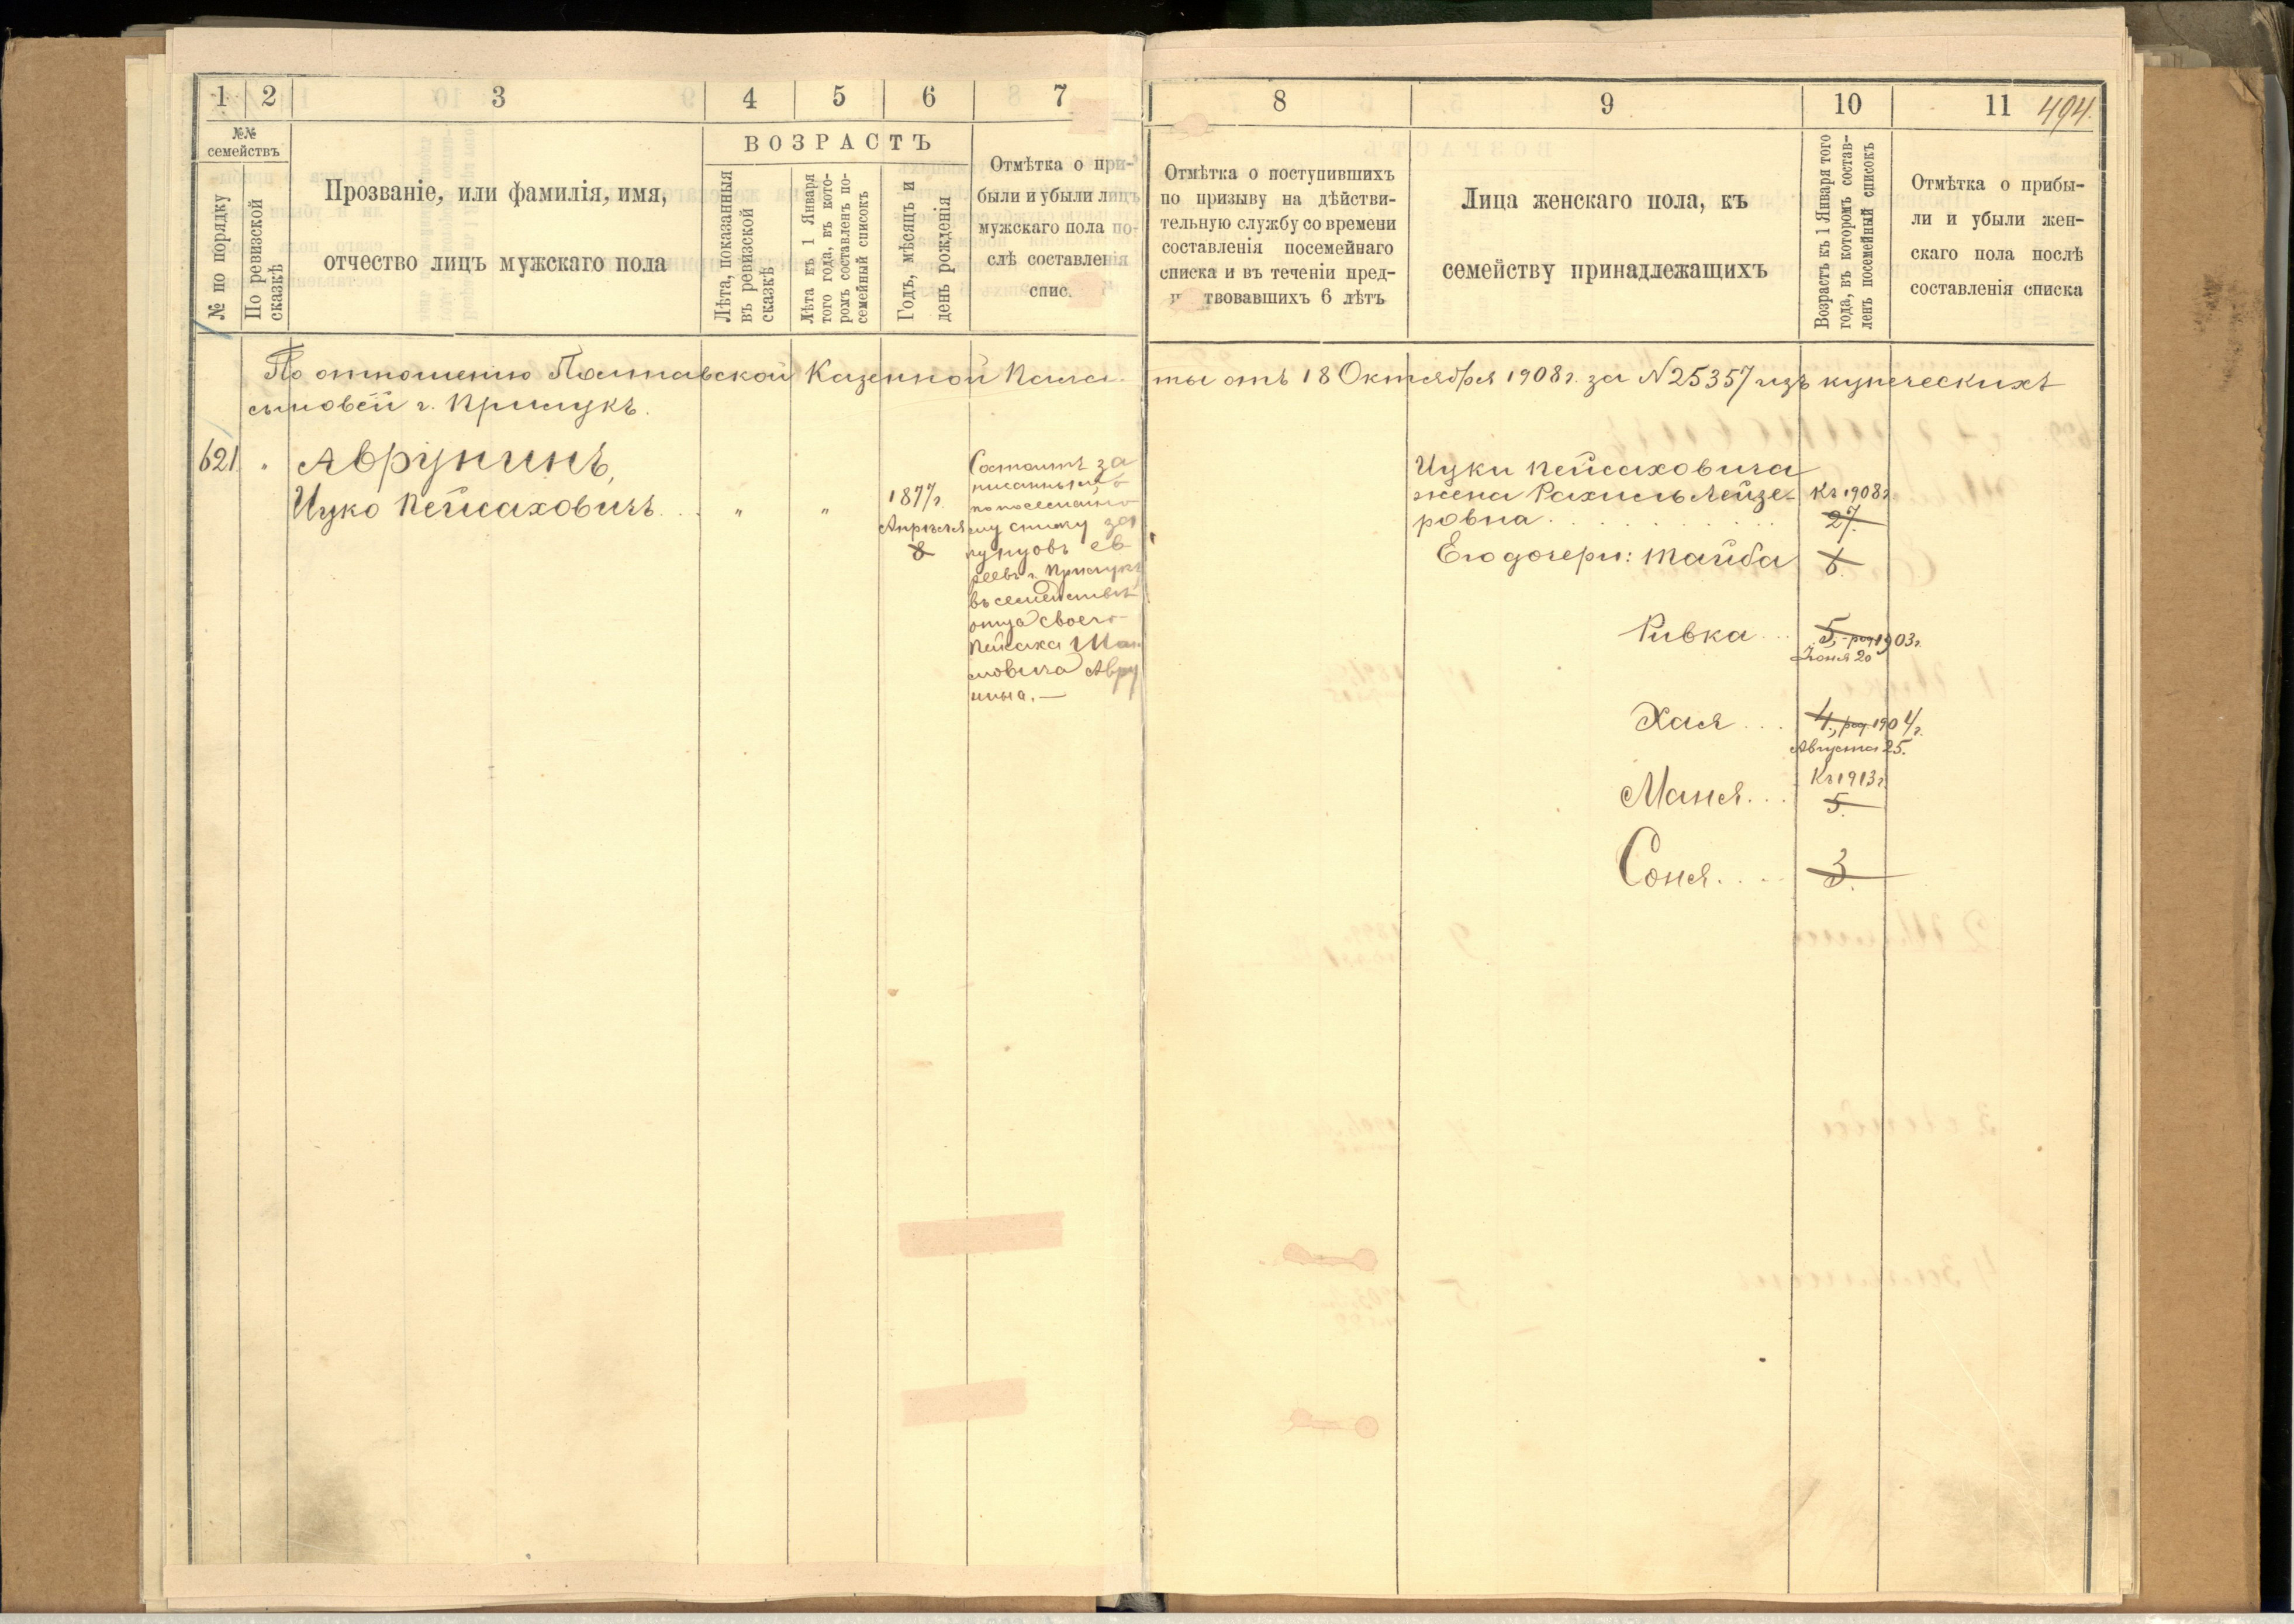 1 2 3 4 5 6 7
№№ семействъ
№ по порядку
По ревизской сказкѣ
Прозваніе, или фамилія, имя,
отчество лицъ мужскаго пола
ВОЗРАСТЪ
Лѣта, показанныя
въ ревизской
сказкѣ
Лѣта къ 1 Января
того года, въ кото-
ромъ составленъ по-
семейный списокъ
Годъ, мѣсяцъ и
день рожденія
Отмѣтка о при-
были и убыли лицъ
мужскаго пола по-
слѣ составленія
спис.
8 9 10 11 494.
Отмѣтка о поступившихъ
по призыву на дѣйстви-
тельную службу со времени
составленія посемейнаго
списка и въ теченіи пред-
твовавшихъ 6 лѣтъ
Лица женскаго пола, къ
семейству принадлежащихъ
Возрастъ къ 1 Января того
года, въ которомъ состав-
ленъ посемейный списокъ
Отмѣтка о прибы-
ли и убыли жен-
скаго пола послѣ
составленія списка
По отношенію Полтавской Казенной Пала- ты отъ 18 Октября 1908 г. за N 25357 изъ купеческихъ
сыновей г. Прилукъ.
621 " Аврунинъ,
Ицко Пейсаховичъ . . " "
1877 г.
Апрѣля
8
Состоитъ за
писаннымъ
по посемейно
му списку за
купцовъ ев
реевъ г. Прилукъ
въ семействѣ
отца своего
Пейсаха
мовича Авру
нина. —
Ицки Пейсаховича
жена Рахиль Лейзе-
ровна . . . . . . .
Къ 1908 г.
27.
Его дочери: Тайба 6.
Ривка . . . 5, род. 1903 г.
Іюня 20
Хася . . . 4, род. 1904 г.
Августа 25.
Къ 1913 г.
Маня . . . 5.
Соня . . . . 3.